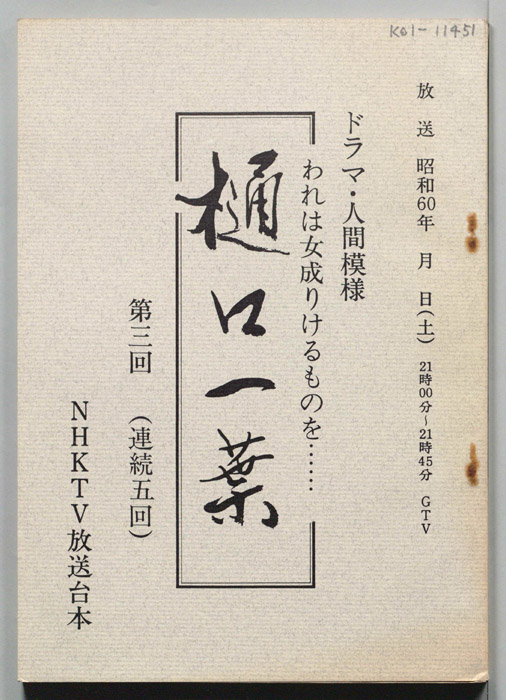 K01-11451
放送 昭和60年 月 日(土) 21時00分～21時45分 GTV
ドラマ・人間模様
われは女成りけるものを……
樋口一葉
第三回 (連続五回)
NHKTV放送台本